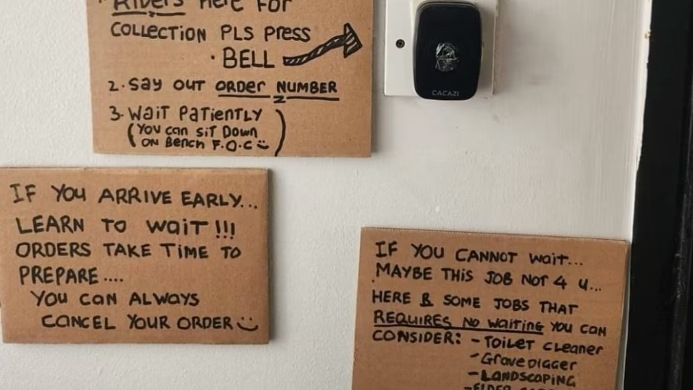 1. RIDERS HERE FOR
COLLECTION PLS PRESS
· BELL
2. SAY OUT ORDER NUMBER
3. WAIT PATIENTLY
(YOU CAN SIT DOWN
ON BENCH F.O.C)
CACAZI
IF YOU ARRIVE EARLY...
LEARN TO WAIT!!!
ORDERS TAKE TIME TO
PREPARE....
YOU CAN ALWAYS
CANCEL YOUR ORDER
IF YOU CANNOT WAIT...
MAYBE THIS JOB NOT 4 U...
HERE R SOME JOBS THAT
REQUIRES NO WAITING YOU CAN
CONSIDER: - TOILET CLEANER
- GRAVE DIGGER
- LANDSCAPING